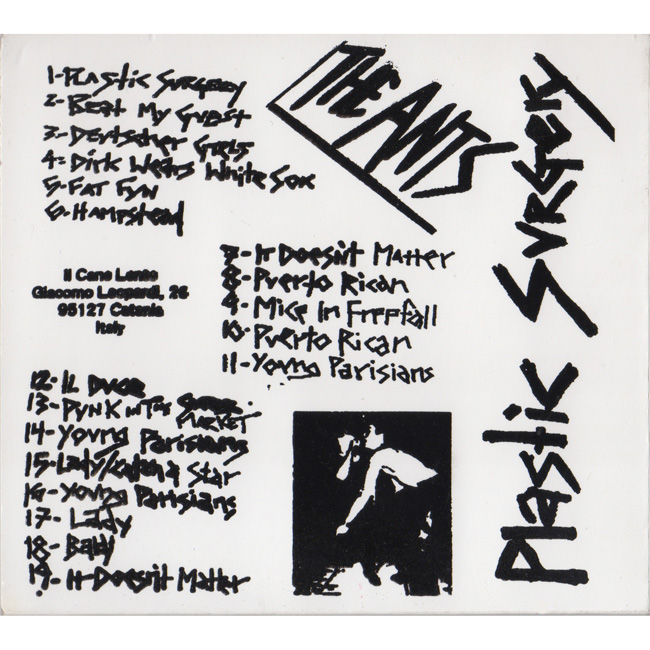 THE ANTS
Plastic Surgery
1-Plastic Surgery
2-Beat My Guest
3-Deutscher Girls
4-Dirk Wears White Sox
5-Fat Fun
6-Hampstead
7-It Doesn't Matter
8-Puerto Rican
9-Mice In Freefall
10-Puerto Rican
11-Young Parisians
Il Cane Lento
Giacomo Leopardi, 26
95127 Catania
Italy
12-IL DUCE
13-PUNK IN THE SUPER
MARKET
14-Young Parisians
15-Lady/Catch a Star
16-Young Parisians
17-Lady
18-Baby
19-It Doesn't Matter